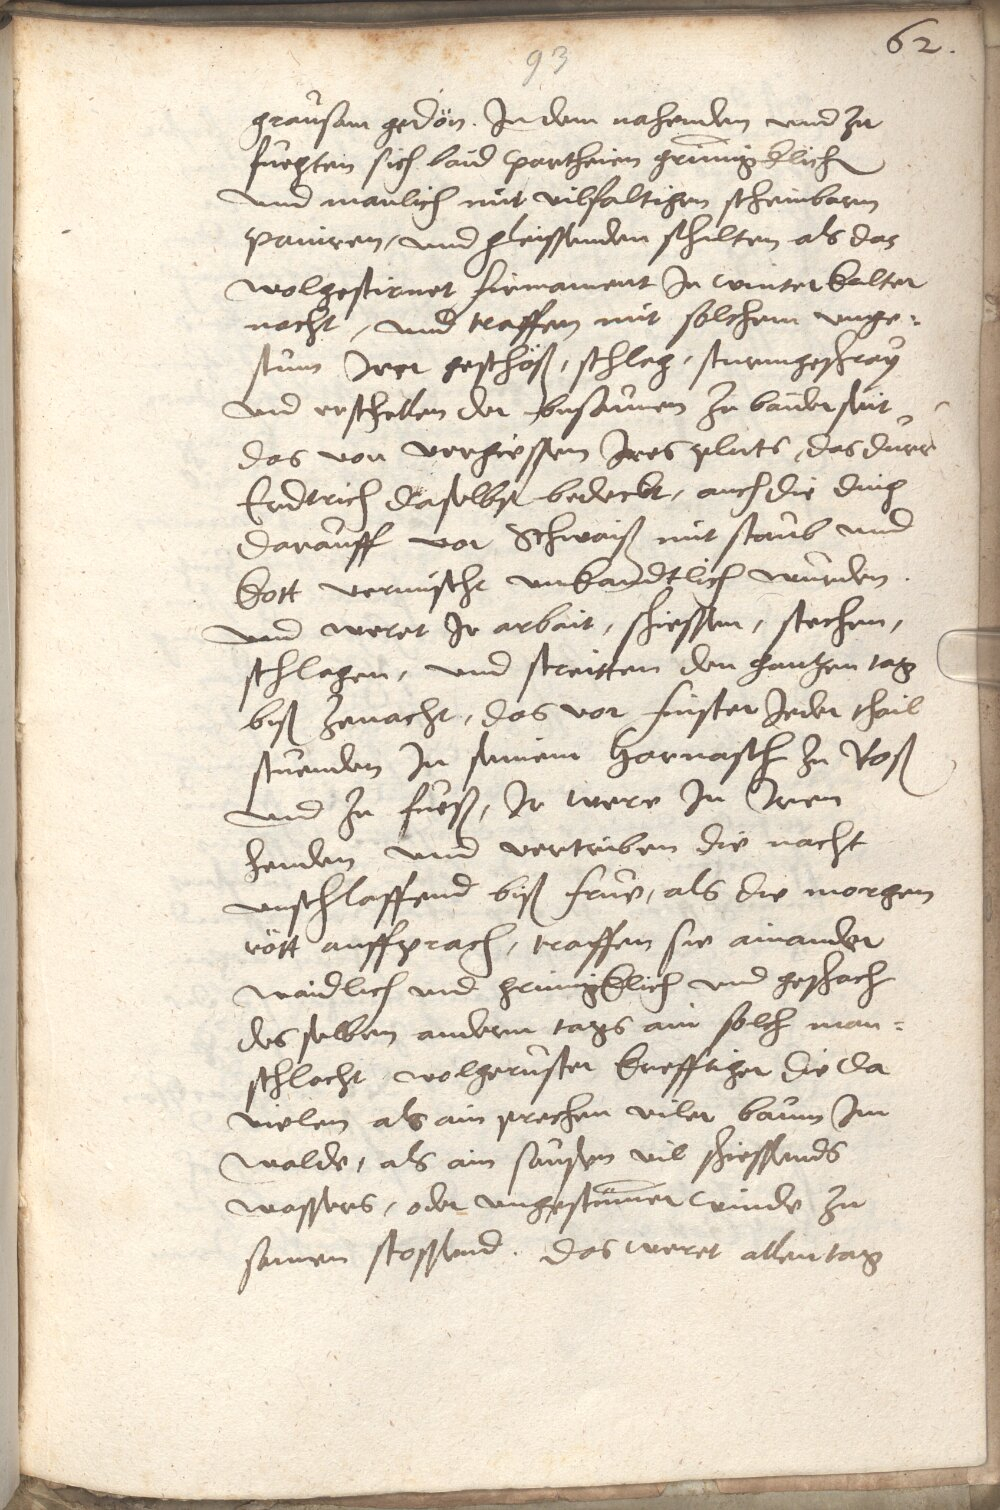 62.
93
grausam gedön. In dem nahenden und zu
fuegten sich baid partheien grimmigklich
und manlich mit vilfaltigen scheinbarn
paniren, und gleissenden schilten als das
wolgestirnet firmament in winter kalter
nacht, und traffen mit solchem unge=
stum Irer geschöß, schleg, sturmgeschray
und erschellen der busaunen zu baiderseit
das von vergiessen Ires pluts, das dürr
Erdtrich daselbst bedeckt, auch die ding
darauff vor Schwaiß mit staub und
kott vermischt unkandtlich wurden.
und weret Ir arbait, schiessen, stechen,
schlagen, und streitten den gantzen tag
biß zenacht, das vor finster Jeder thail
stuenden In seinem Harnasch zu Roß
und zu fueß, Ir were In Iren
henden und vertriben die nacht
unschlaffend biß frue, als die morgen
rött auffprach, traffen sie ainander
waidlich und grimigklich und geschach
des selben andern tags ain solch man=
schlacht wolgeruster krefftiger die da
vielen als ain prechen viler baum Im
walde, als ain sausen vil schiessends
wassers, oder ungestümer winde zu
samen stossend. das weret allen tag